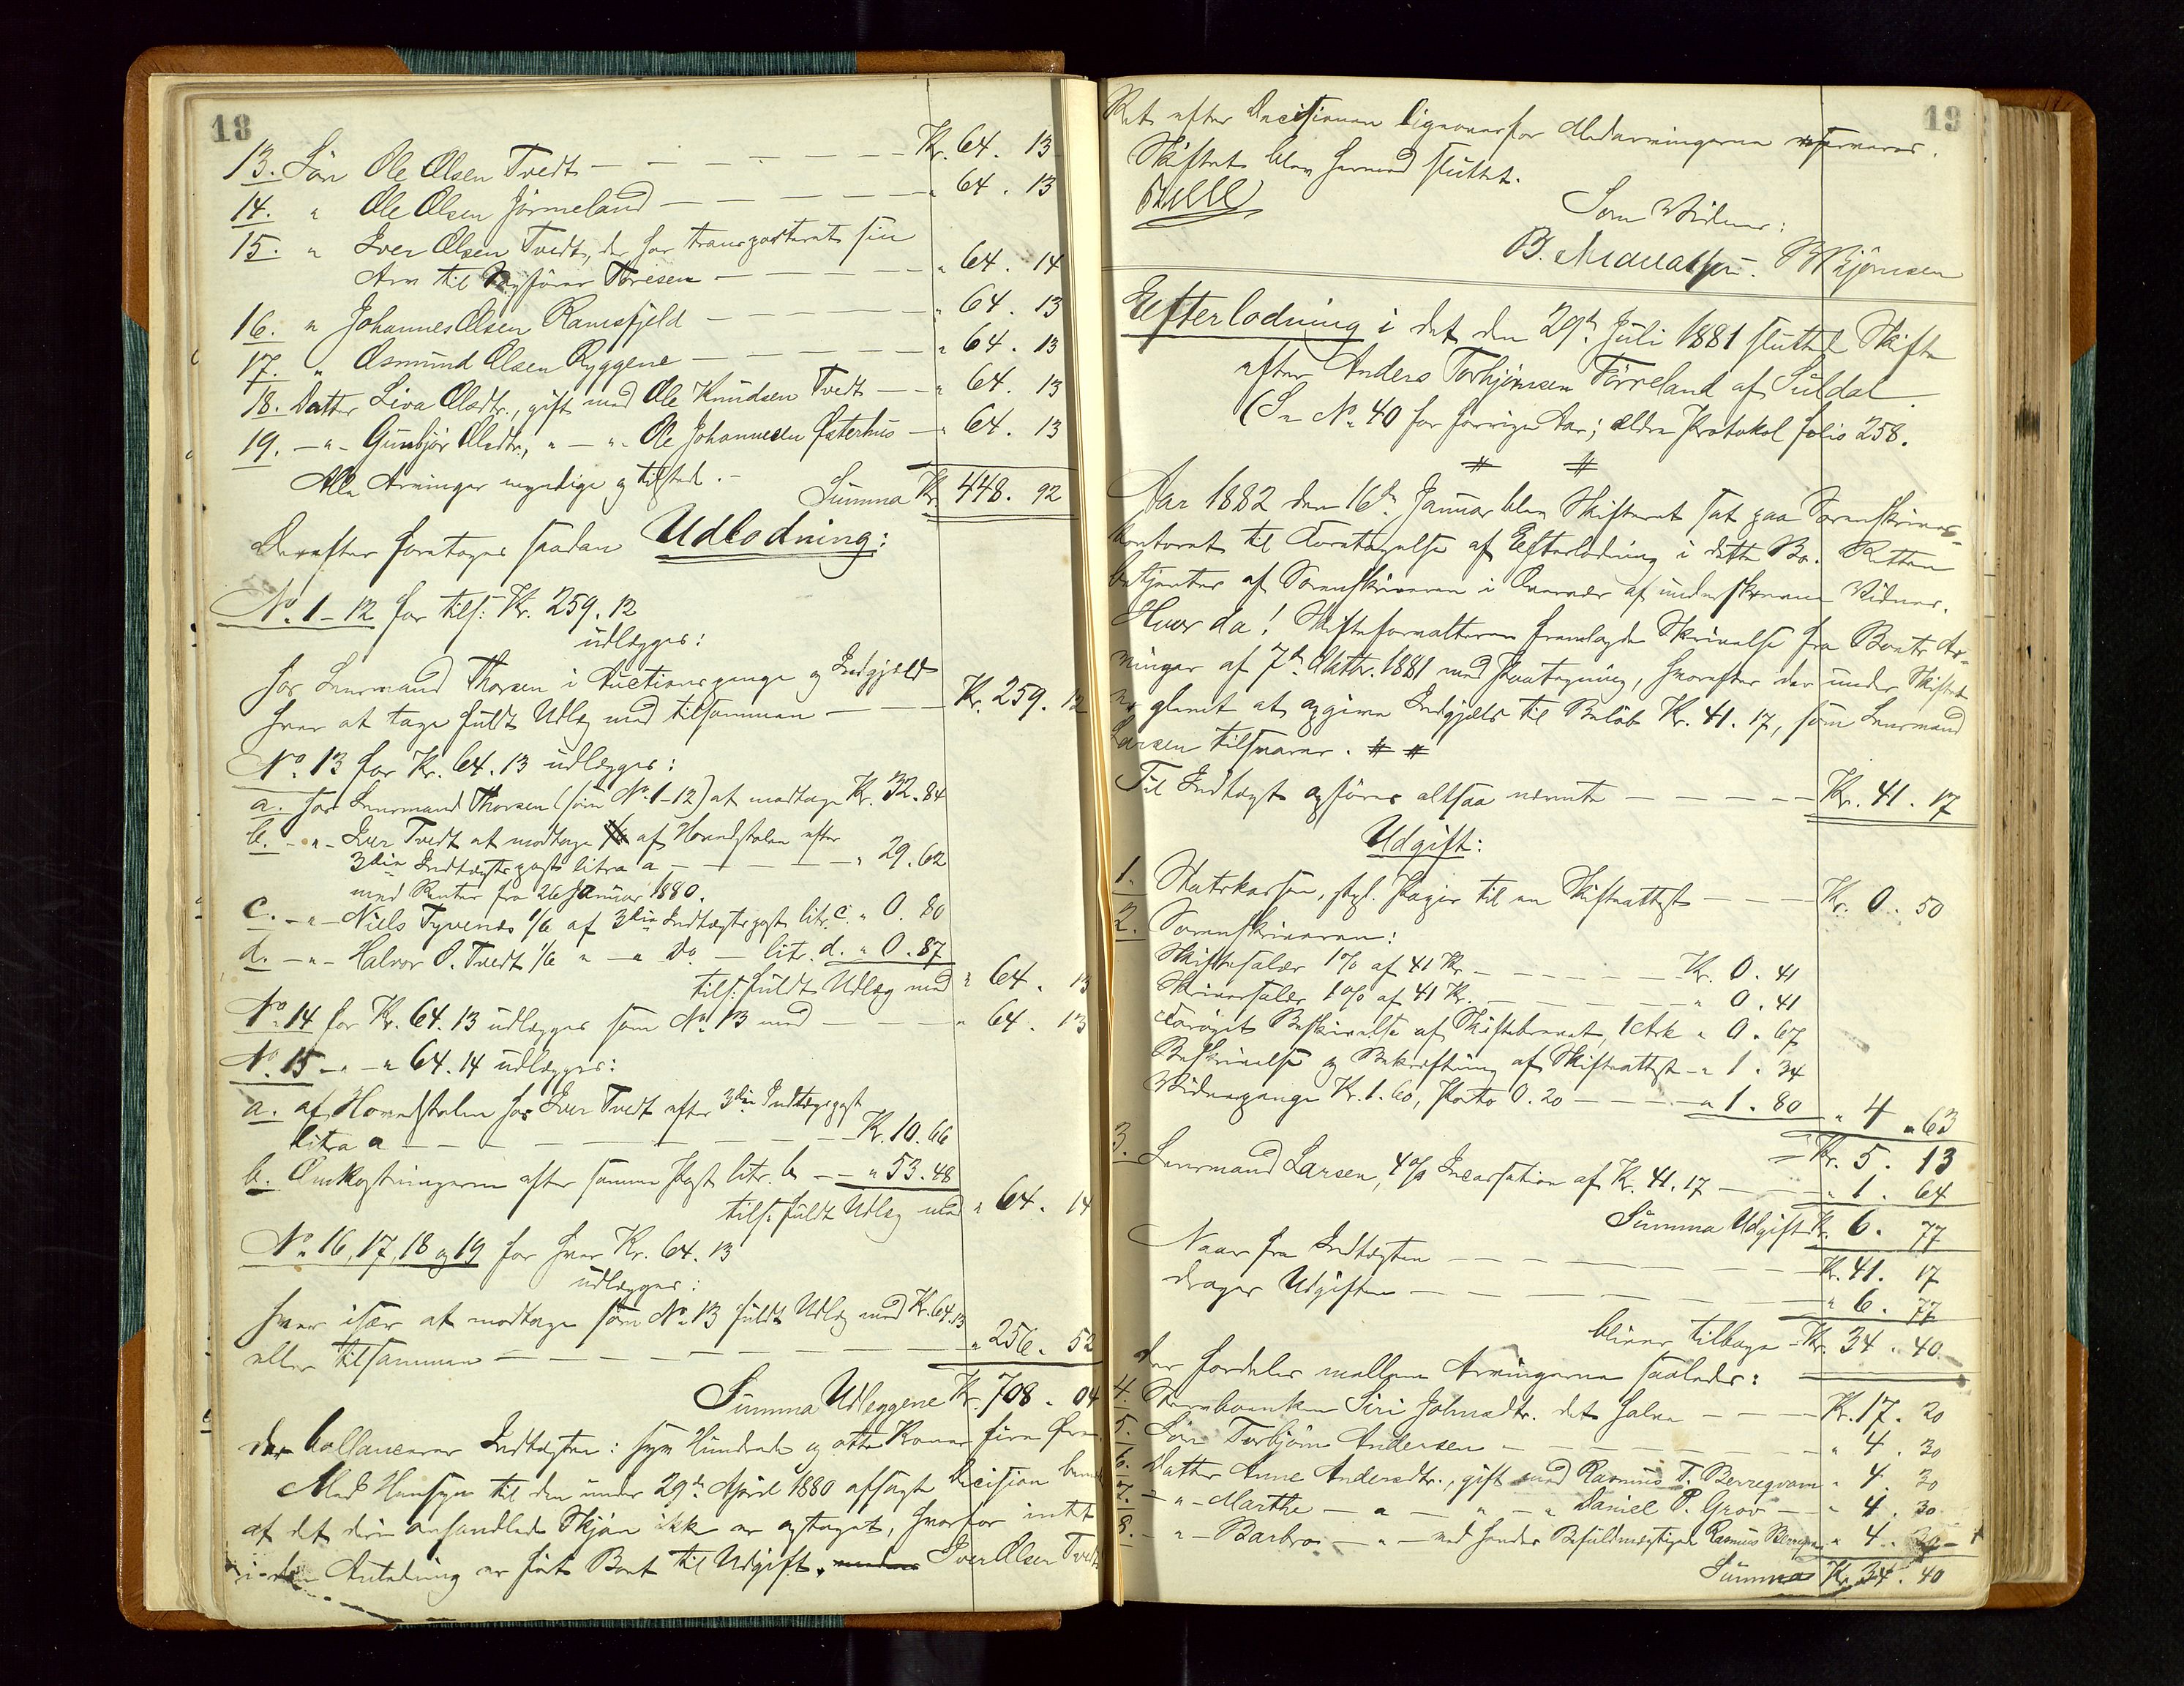 18
13. Søn Ole Olsen Tvedt — Kr. 64. 13
14. " Ole Olsen Jørmeland — " 64. 13
15. " Iver Olsen Tvedt, der har transporteret sin
Arv til Toresen — " 64. 14
16. " Johannes Olsen Ramsfjeld — " 64. 13
17. " Osmund Olsen Ryggene — " 64. 13
18. Datter Siva Olsdtr., gift med Ole Knudsen Tvedt — " 64. 13
19. — " — Gunbjør Olsdtr., " — " Ole Johannesen Østerhus — " 64. 13
Alle Arvinger myndige og tilstede. —
Summa Kr. 448. 92
Derefter foretoges saadan Udlodning:
No. 1-12 for tils: Kr. 259. 12
udlægges:
hos Lensmand Thorsen i Auctionspenge og Indgjæld
hver at tage fuldt Udlæg med tilsammen — Kr. 259. 12
No. 13 for Kr. 64. 13 udlægges:
a. hos Lensmand Thorsen (som No. 1-12) at modtage Kr. 32. 84
b. — " — Iver Tvedt at modtage 1/6 af Hovedstolen efter
3die Indtægtspost litra a — " 29. 62
med Renter fra 26 Januar 1880.
c. — " — Niels Tyvenæs 1/6 af 3die Indtægtspost litr. c. " 0. 80
d. — " — Halvor O. Tvedt 1/6 " — " Do. — litr. d. " 0. 87
tils: fuldt Udlæg med " 64. 13
No. 14 for Kr. 64. 13 udlægges som No. 13 med — " 64. 13
No. 15 — " — " 64. 14 udlægges:
a. af Hovedstolen hos Iver Tvedt efter 3die Indtægtspost
litra a — Kr. 10. 66
b. Omkostningerne efter samme Post litr. b — " 53. 48
tils: fuldt Udlæg med " 64. 14
No. 16, 17, 18 og 19 for hver Kr. 64. 13
udlægges:
hver især at modtage som No. 13 fuldt Udlæg med Kr. 64. 13
eller tilsammen — " 256. 52
Summa Udlæggene Kr. 708. 04
der ballancerer Indtægten: syv Hundrede og otte Kroner fire Øre.
Med Hensyn til den under 29de April 1880 afsagte Decision
af det deri omhandlede Skjøn ikke er optaget, hvorfor intet
i den Anledning er ført Boet til Udgift. Iver Olsen Tvedts
19
Ret efter Decisionen ligeoverfor Medarvingerne reserveres.
Skiftet blev hermed sluttet.
Som Vidner:
B.
Efterlodning i det den 29de Juli 1881 sluttede Skifte
efter Anders Torbjørnsen Førreland af Suldal.
(Se No. 40 for forrige Aar; ældre Protokol folio 258.
Aar 1882 den 16de Januar blev Skifteret sat paa Sorenskriver-
kontoret til Foretagelse af Efterlodning i dette Bo. Retten
betjentes af Sorenskriveren i Overvær af underskrevne Vidner.
Hvor da! Skifteforvalteren fremlagde Skrivelse fra Boets Ar-
vinger af 7de Oktbr. 1881 med Paategning, hvorefter der under Skiftet
er glemt at opgive Indgjæld til Beløb Kr. 41. 17, som Lensmand
Larsen tilsvarer.
Til Indtægt opføres altsaa nævnte — Kr. 41. 17
Udgift:
1. Statskassen, stpl. Papir til en Skifteattest — Kr. 0. 50
2. Sorenskriveren:
Skiftesalær 1% af 41 Kr. — Kr. 0. 41
Skriversalær 1% af 41 Kr. — " 0. 41
Forøget Beskrivelse af Skiftebrevet, 1 Ark " 0. 67
Beskrivelse og Bekræftning af Skifteattest — " 1. 34
Vidnepenge Kr. 1. 60, Porto 0. 20 — " 1. 80 " 4. 63
Kr. 5. 13
3. Lensmand Larsen, 4% Incassation af Kr. 41. 17 — " 1. 64
Summa Udgift Kr. 6. 77
Naar fra Indtægten — Kr. 41. 17
drages Udgiften — " 6. 77
bliver tilbage — Kr. 34. 40
der fordeles mellem Arvingerne saaledes:
4. Stervboenken Siri Johnsdtr. det halve — Kr. 17. 20
5. Søn Torbjørn Andersen — " 4. 30
6. Datter Anne Andersdtr., gift med Rasmus T. Berregvam " 4. 30
7. — " — Marthe — " — " — " Daniel P. Grov — " 4. 30
8. — " — Barbro — " — ved hendes Befuldmægtigede Rasmus " 4. 30
Summa Kr. 34. 40